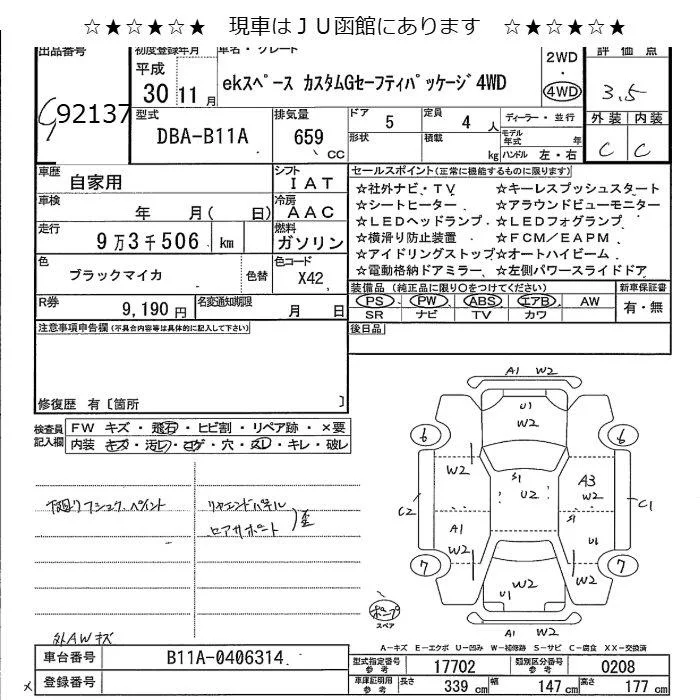 ☆★☆★☆★ 現車はJU函館にあります ☆★☆★☆★
出品番号
92137
初度登録年月
平成
30 11月
車名・グレード
ekスペース カスタムGセーフティパッケージ 4WD
2WD
・
4WD
評価点
3.5
外装 内装
C C
型式
DBA-B11A
排気量
659 cc
ドア
5
定員
4 人
形状
積載
kg
ディーラー・並行
モデル年式 年
ハンドル 左・右
車歴
自家用
シフト
IAT
車検
年 月( 日)
冷房
AAC
走行
9万3千506 km
燃料
ガソリン
色
ブラックマイカ
色替
色コード
X42
R券
9,190 円
名変通知期限
月 日
セールスポイント(正常に機能するものに限ります)
☆社外ナビ・TV ☆キーレスプッシュスタート
☆シートヒーター ☆アラウンドビューモニター
☆LEDヘッドランプ ☆LEDフォグランプ
☆横滑り防止装置 ☆FCM/EAPM
☆アイドリングストップ☆オートハイビーム
☆電動格納ドアミラー ☆左側パワースライドドア
装備品(純正品に限り○をつけてください)
PS PW ABS エアB AW
SR ナビ TV カワ
新車保証書
有・無
後日品
注意事項申告欄(不具合内容等は具体的に記入して下さい)
修復歴 有〔箇所 〕
検査員記入欄
FW キズ・飛石・ヒビ割・リペア跡・×要
内装 キズ・汚レ・コゲ・穴・スレ・キレ・破レ
下廻りフシュク、ペイント
リヤエンドパネル
リアサポート
歪
外AWキズ
A1 W2
U1
W2
6 6
W2
S1
U2
A3
W2
C2 C1
A1
W2
S1
U1
W2
7 7
W2
A1 W2
スペア
A－キズ E－エクボ U－凹み W－補修跡 S－サビ C－腐食 XX－交換済
車台番号
B11A-0406314
登録番号
型式指定番号
参考
17702
類別区分番号
参考
0208
車庫証明用
参考
長さ 339 cm 幅 147 cm 高さ 177 cm